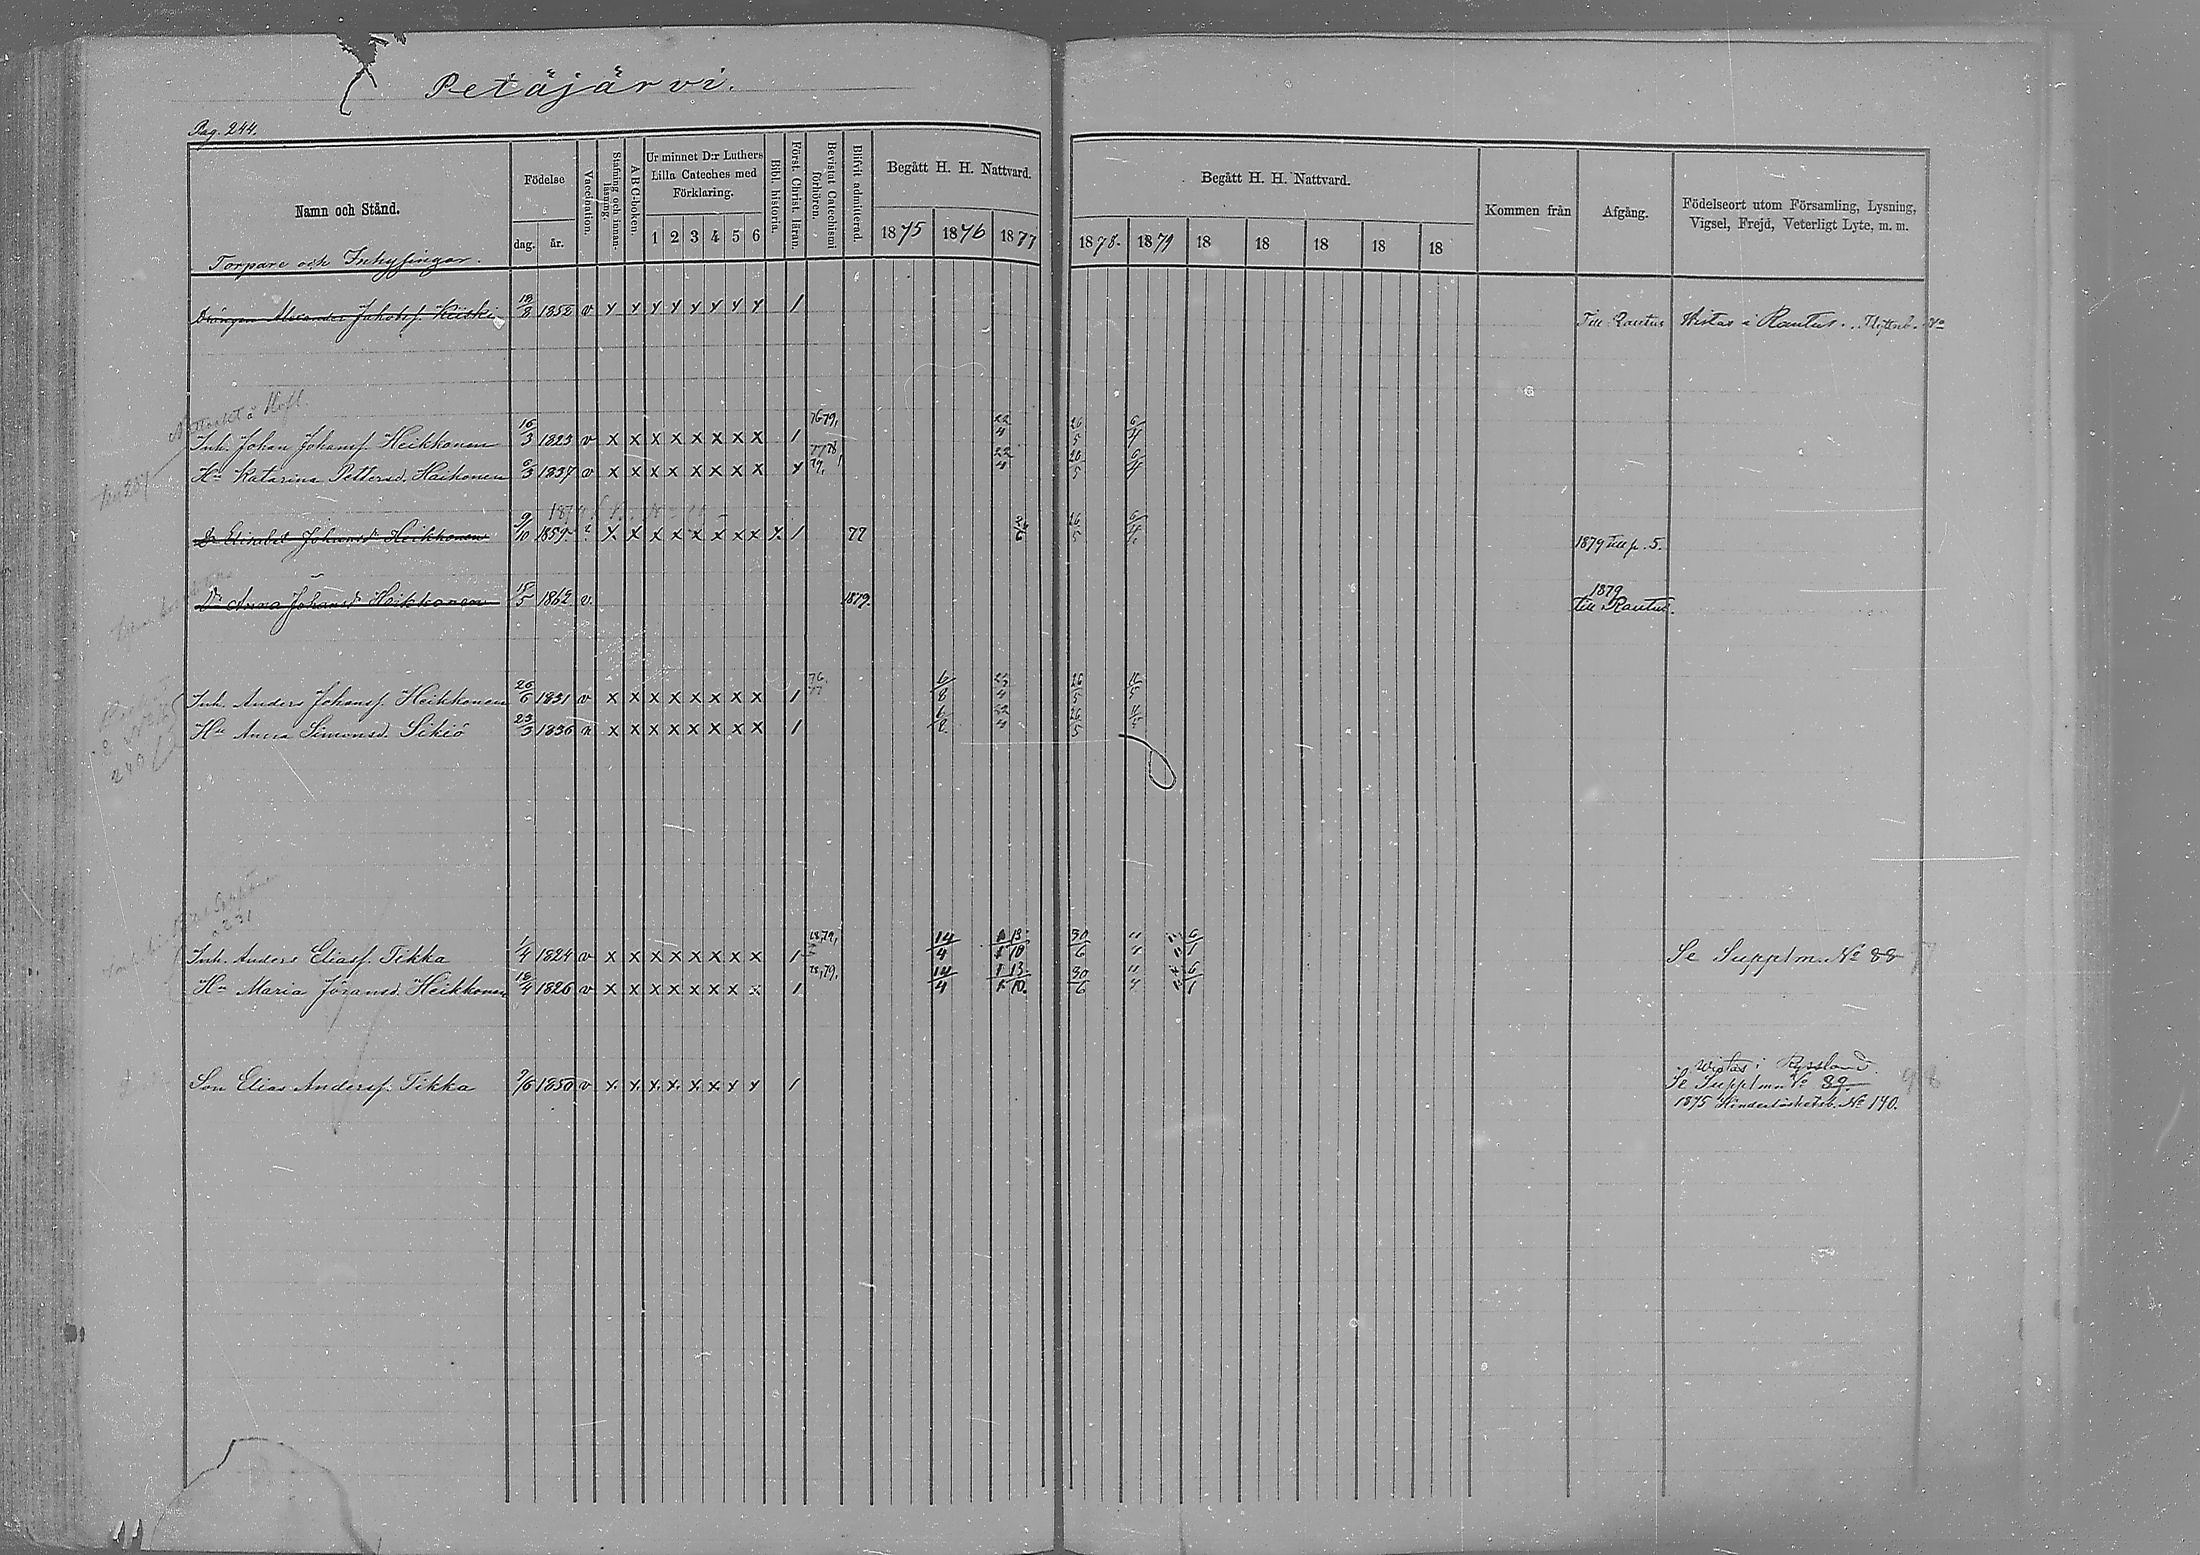 Petäjärvi.
Pag. 244.
Namn och Stånd.
Födelse
dag. år.
Vaccination.
Stafning och innanläsning.
A B C-boken.
Ur minnet D:r Luthers Lilla Cateches med Förklaring.
1 2 3 4 5 6
Bibl. historia.
Först. Christ. läran.
Bevistat Catechismi förhören.
Blifvit admitterad.
Begått H. H. Nattvard.
1875 1876 1877
Begått H. H. Nattvard.
1878. 1879 18 18 18 18 18
Kommen från
Afgång.
Födelseort utom Församling, Lysning, Vigsel, Frejd, Veterligt Lyte, m. m.
Torpare och Inhysingar.
Drängen Alexander Jakobsf. Kiiski 18/8 1852 v y y y y y y y y 1 Till Rautus Wistas i Rautus.
Inh. Johan Johansf. Heikkonen 16/3 1823 v x x x x x x x x 1 76 79, 22/4 26/5 6/4
Hu Katarina Pettersd. Haikonen 6/3 1837 v x x x x x x x x y 77 78 79, 22/4 26/5 6/4
Dr Elisabet Johansd. Heikkonen 9/10 1859 x x x x x x x x x 1 77 24/6 26/5 6/4 1879 till p. 5.
Dr Anna Johansd Heikkonen 1862 v. 1879. 1879 till Rautus.
Inh. Anders Johansf. Heikkonen 26/6 1831 v x x x x x x x x 1 76, 77 6/8 23/4 26/5 11/5
Hu Anna Simonsd. Sikiö 23/3 1836 v x x x x x x x x 1 6/8 22/4 26/5 11/5
Inh. Anders Eliasf. Tikka 1/4 1824 v x x x x x x x x 1 78,79, 14/4 13/10 30/6 6/1 Se Supplm. No 88
Hu Maria Jöransd. Heikkonen 18/4 1826 v x x x x x x x x 1 78,79. 14/4 13/10. 30/6 6/1
Wistas i Ryssland.
Son Elias Andersf. Tikka 7/6 1850 v x x x x x x y y 1 Se Supplm No 89.
1875 Hinderlöshetsb. No 140.